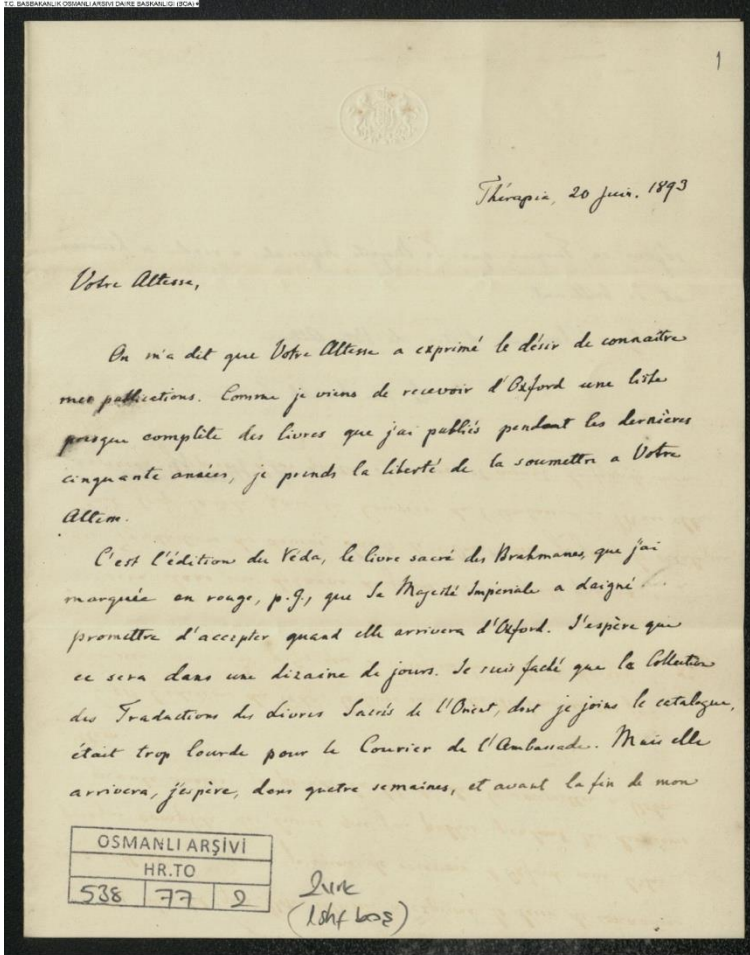 T.C. BASBAKANLIK OSMANLI ARSIVI DAIRE BASKANLIGI (BOA)
1
Thérapia, 20 Juin. 1893
Votre Altesse,
On m'a dit que Votre Altesse a exprimé le désir de connaître
mes publications. Comme je viens de recevoir d'Oxford une liste
presque complète des livres que j'ai publiés pendant les dernières
cinquante années, je prends la liberté de la soumettre a Votre
Altesse.
C'est l'édition du Véda, le livre sacré des Brahmanes, que j'ai
marquée en rouge, p.9, que Sa Majesté Impériale a daigné
promettre d'accepter quand elle arrivera d'Oxford. J'espère que
ce sera dans une dizaine de jours. Je suis faché que la Collection
des Traductions des Livres Sacrés de l'Orient, dont je joins le catalogue,
était trop lourde pour le Courier de l'Ambassade. Mais elle
arrivera, j'espère, dans quatre semaines, et avant la fin de mon
OSMANLI ARŞİVİ
HR.TO
538 77 2
2 vrk
(1 shf boş)